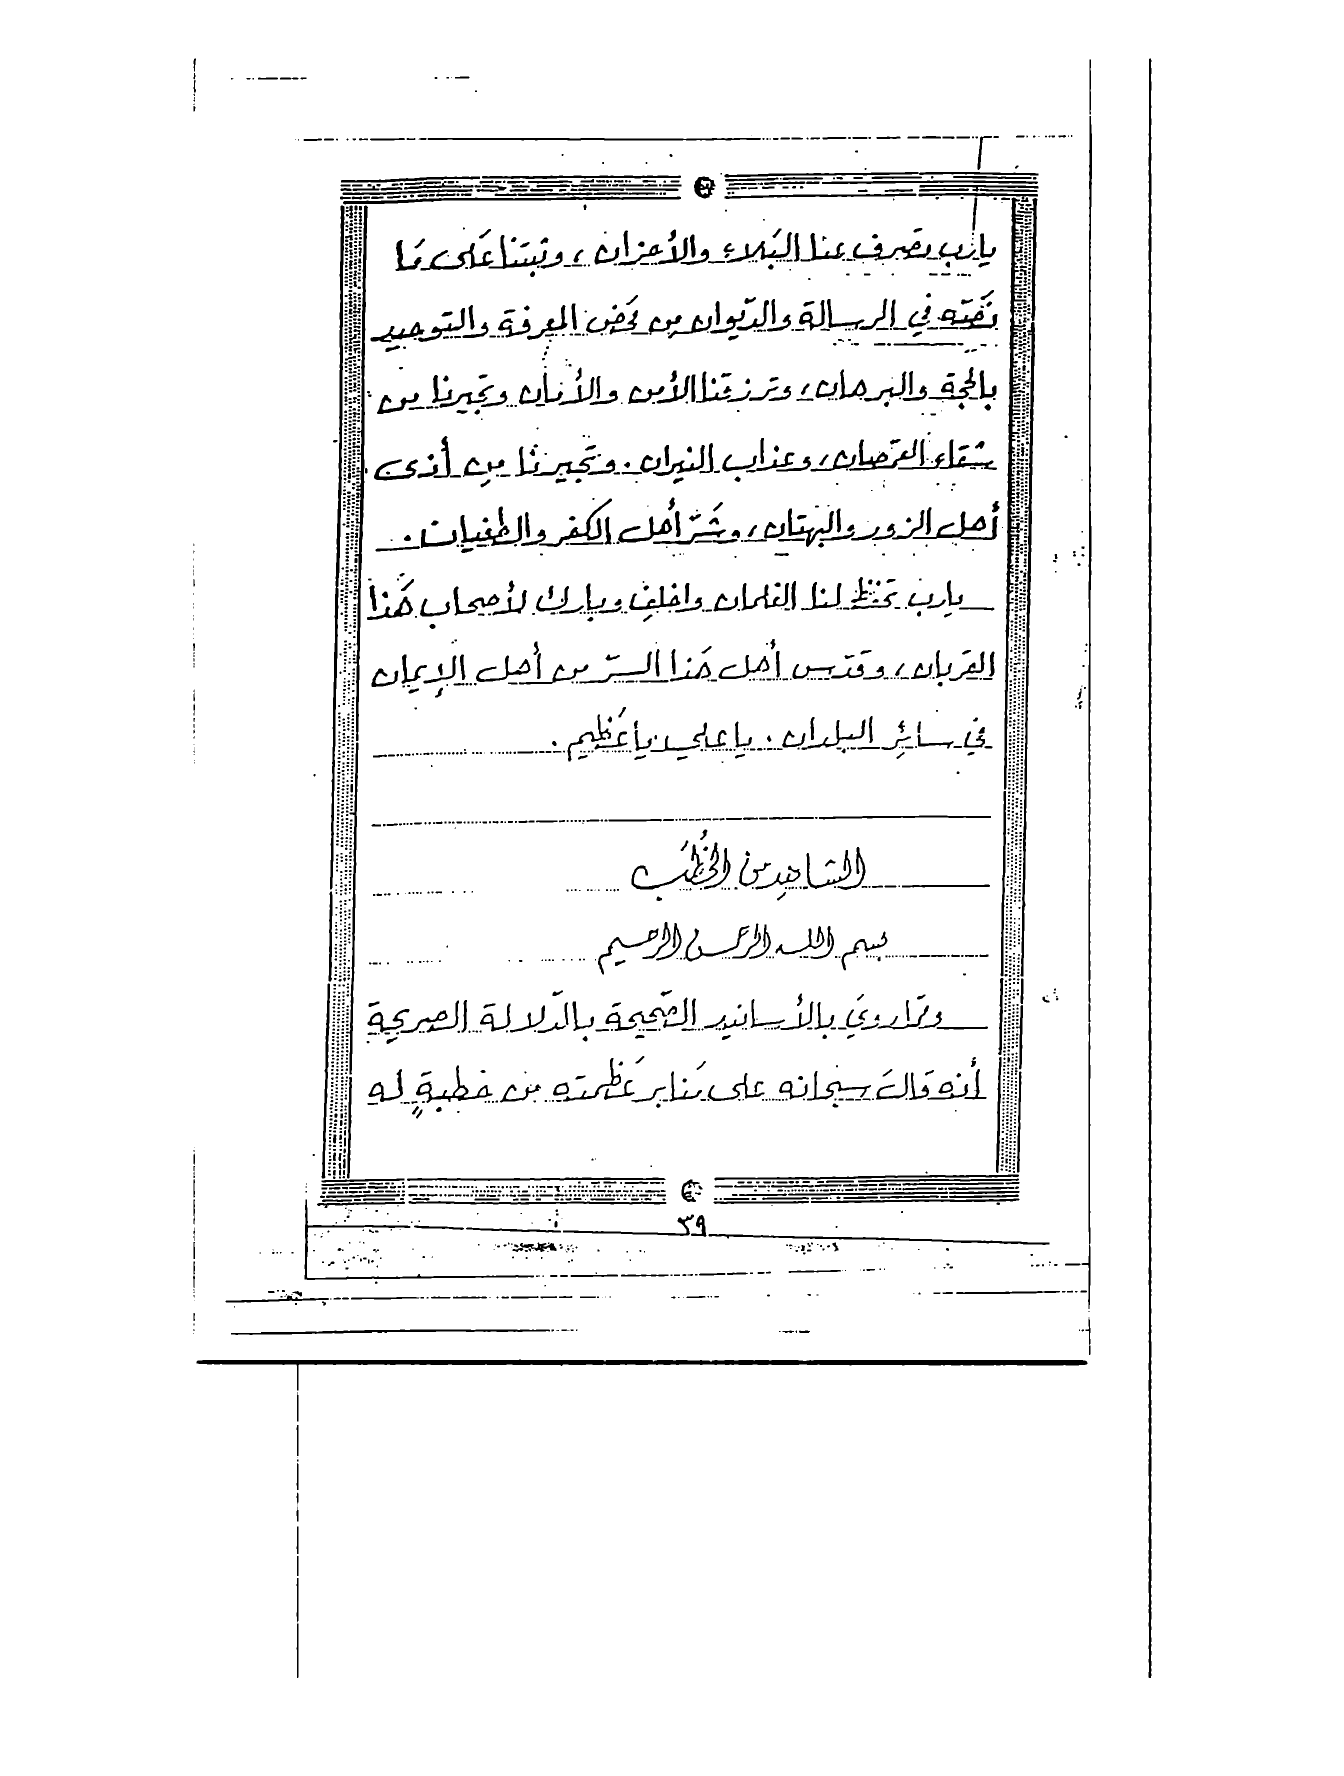 يارب تصرف عنا البَلاء والأحزان، وتثبتنا عَلى مَا
نصَّته في الرسالة والدّيوان من مَحض المعرفة والتوحيد
بالحجة والبرهان، وترزقنا الأمن والأمان وتجيرنا من
شقاء القمّصان، وعذاب النيران. وتجيرنا مِن أذى
أهل الزور والبهتان، وشَرّ أهل الكفر والطغيان.
يارب تحفظ لنا الغلمان واخلف وبارك لأصحاب هَذا
القربان، وقدّس أهل هَذا السرّ من أهل الإيمان
في سائر البلدان. يا علي يا عَظيم.
الشاهد من الخُطَب
بسم الله الرحمن الرحيم
وممّا رويَ بالأسانيد الصّحيحة بالدّلالة الصريحة
أنه قالَ سبحانه على مَنابر عَظمته من خطبةٍ له
٣٩